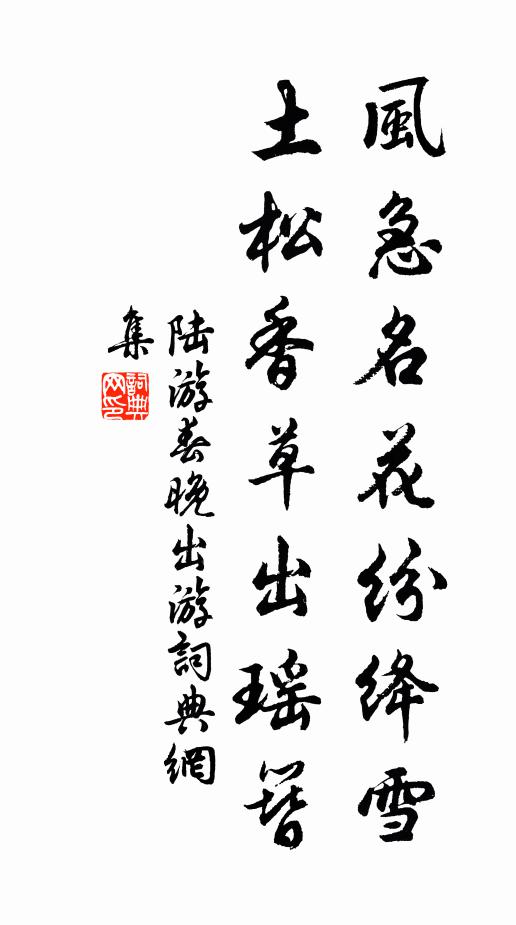 風急名花紛絳雪
土松香草出瑶簪
陆游春晚出游詞典網
集
詞典
网印